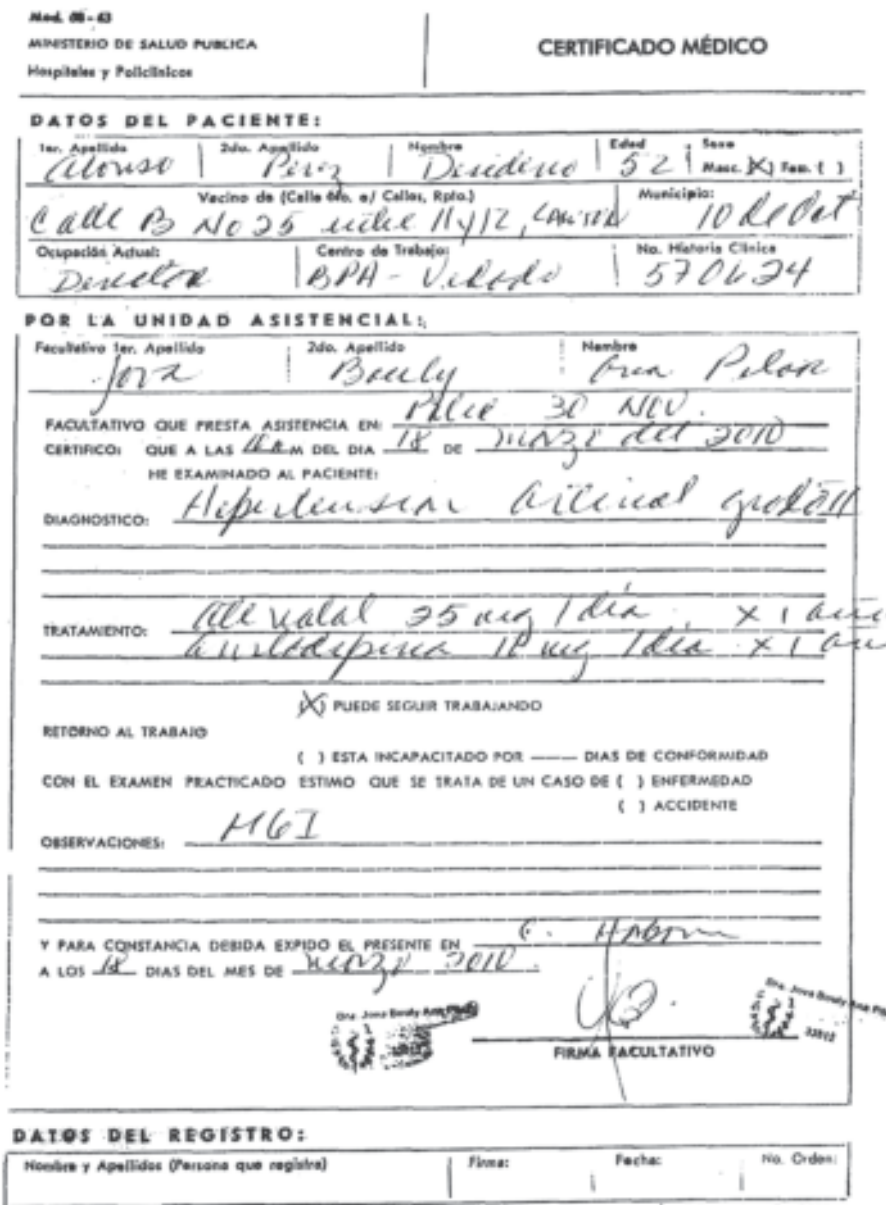 Mod. 08-63
MINISTERIO DE SALUD PUBLICA
Hospitales y Policlínicos
CERTIFICADO MÉDICO
DATOS DEL PACIENTE:
1er. Apellido 2do. Apellido Nombre Edad Sexo
Alonso Pérez Desiderio 52 Masc. (X) Fem. ( )
Vecino de (Calle No. e/ Calles, Rpto.) Municipio:
Calle B No 25 entre 11 y 12, 10 de Oct
Ocupación Actual: Centro de Trabajo: No. Historia Clínica
Director BPA - Vedado
POR LA UNIDAD ASISTENCIAL:
Facultativo 1er. Apellido 2do. Apellido Nombre
Jova Bouly Ana Pilar
FACULTATIVO QUE PRESTA ASISTENCIA EN: 30 NOV.
CERTIFICO: QUE A LAS M DEL DIA 18 DE marzo del 2010
HE EXAMINADO AL PACIENTE:
DIAGNOSTICO: Hipertensión Arterial grado II
TRATAMIENTO: 25 mg 1 día x 1 año
10 mg 1 día x 1 año
(X) PUEDE SEGUIR TRABAJANDO
RETORNO AL TRABAJO
( ) ESTA INCAPACITADO POR ——— DIAS DE CONFORMIDAD
CON EL EXAMEN PRACTICADO ESTIMO QUE SE TRATA DE UN CASO DE ( ) ENFERMEDAD
( ) ACCIDENTE
OBSERVACIONES: MGI
Y PARA CONSTANCIA DEBIDA EXPIDO EL PRESENTE EN C. Habana
A LOS 18 DIAS DEL MES DE marzo 2010.
Dra. Jova Bouly Ana Pilar
Dra. Jova Bouly Ana
FIRMA FACULTATIVO
DATOS DEL REGISTRO:
Nombre y Apellidos (Persona que registra) Firma: Fecha: No. Orden: